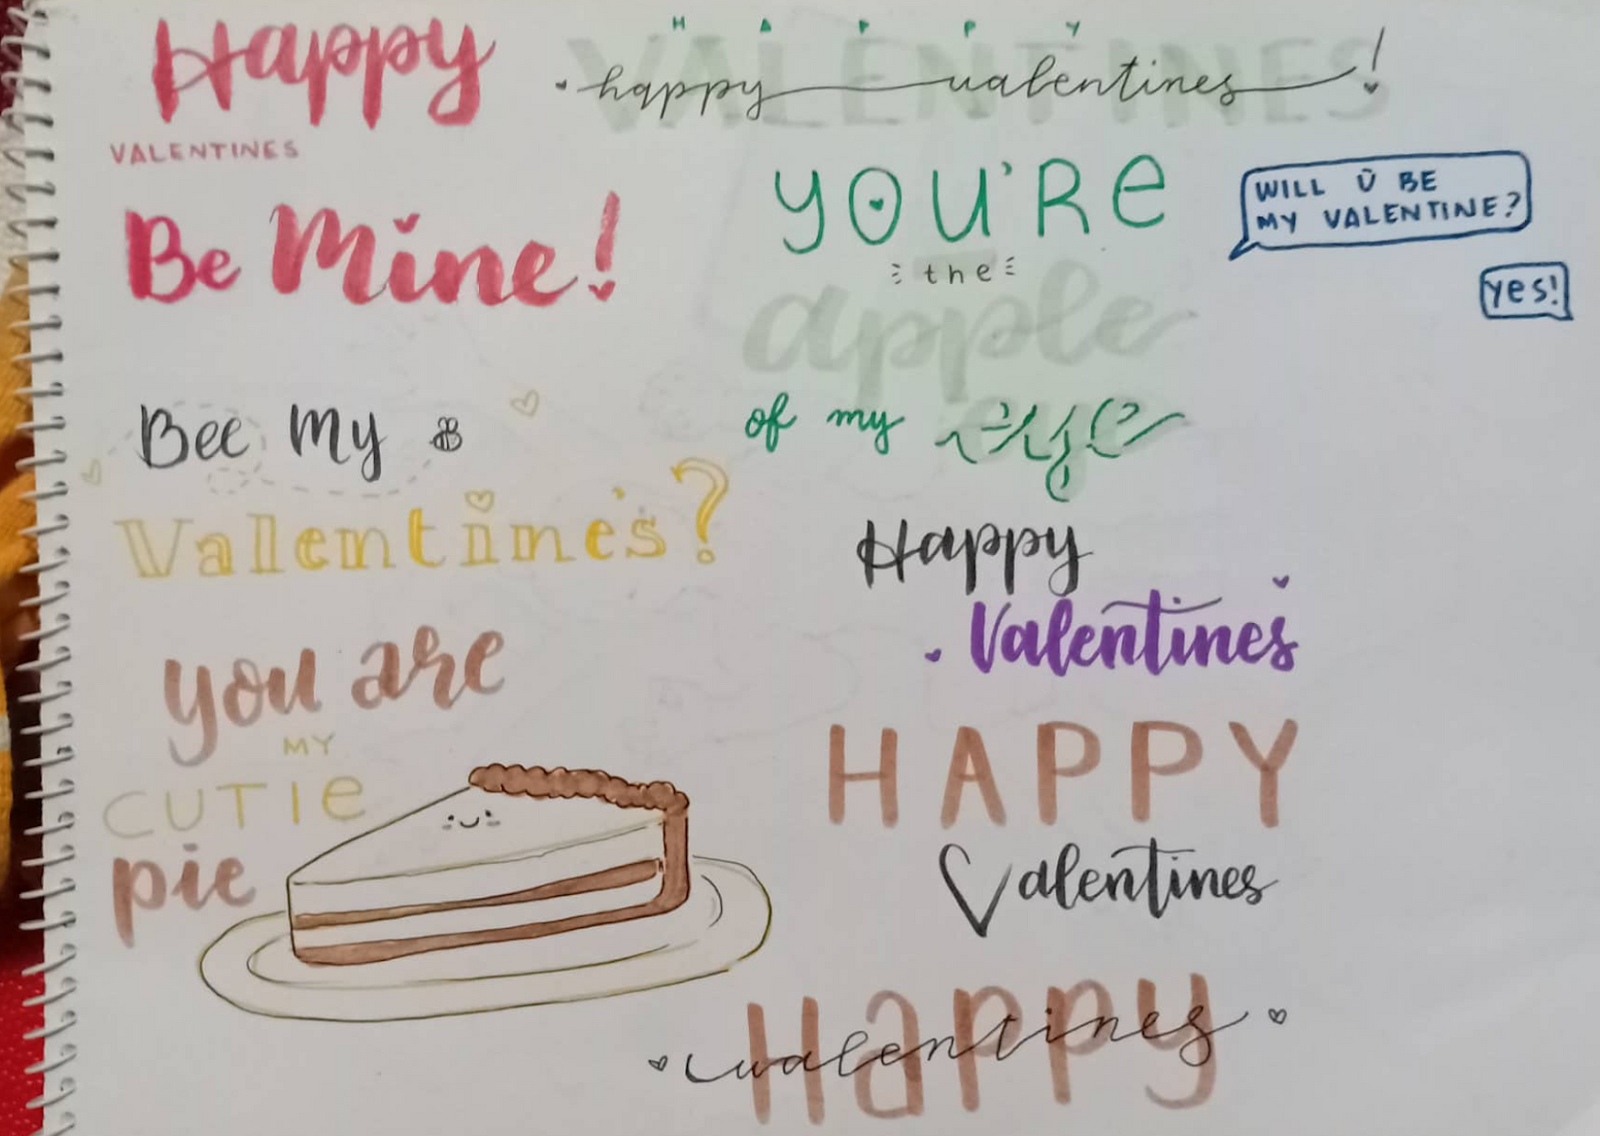 Happy
VALENTINES
HAPPY
VALENTINES
happy valentines!
Be Mine!
YOU'RE
the
apple
of my eye
WILL U BE
MY VALENTINE?
yes!
Bee My
Valentine's?
Happy
Valentines
you are
MY
CUTIE
pie
HAPPY
Valentines
Happy
valentines